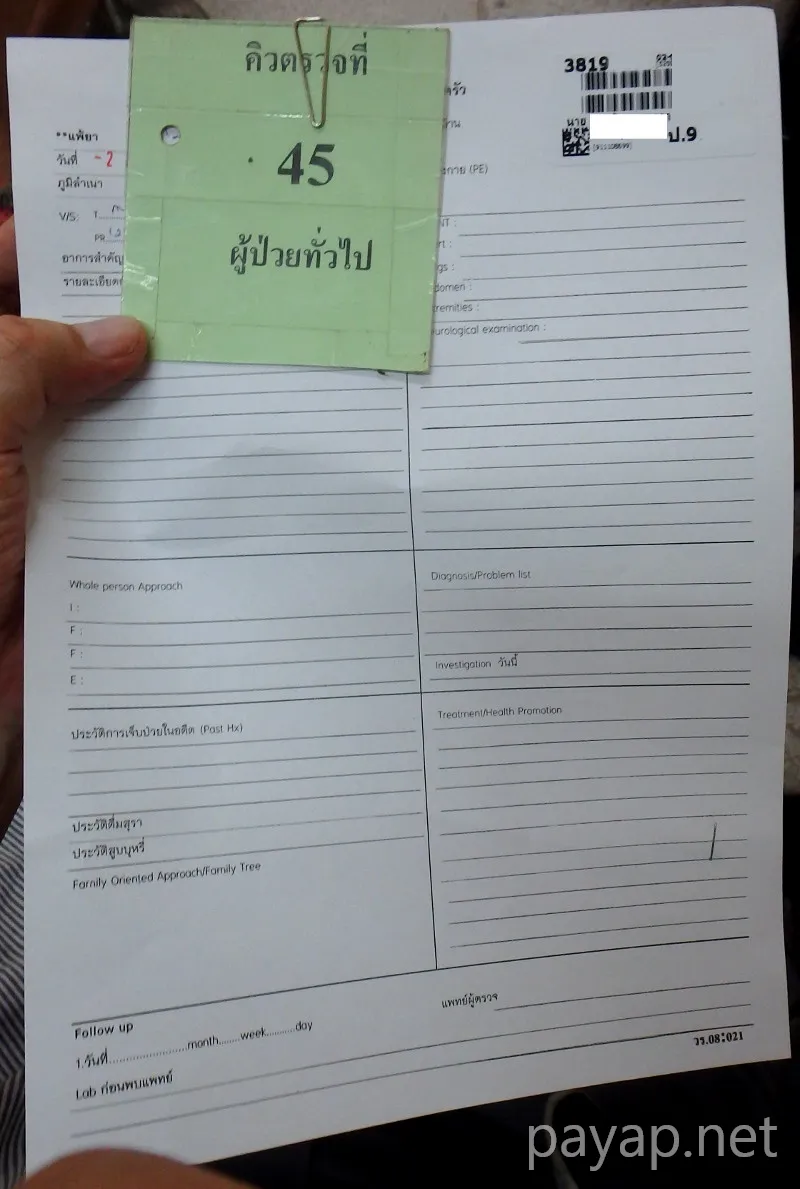 คิวตรวจที่
45
ผู้ป่วยทั่วไป
3819
นาย
ป.9
**แพ้ยา
วันที่ - 2
ภูมิลำเนา
V/S: T
PR
อาการสำคัญ
รายละเอียด
(PE)
Neurological examination :
Whole person Approach
I :
F :
F :
E :
Diagnosis/Problem list
Investigation วันนี้
ประวัติการเจ็บป่วยในอดีต (Past Hx)
ประวัติดื่มสุรา
ประวัติสูบบุหรี่
Family Oriented Approach/Family Tree
Treatment/Health Promotion
แพทย์ผู้ตรวจ
Follow up
1.วันที่........................month.......week..........day
Lab ก่อนพบแพทย์
วร.08:021
payap.net